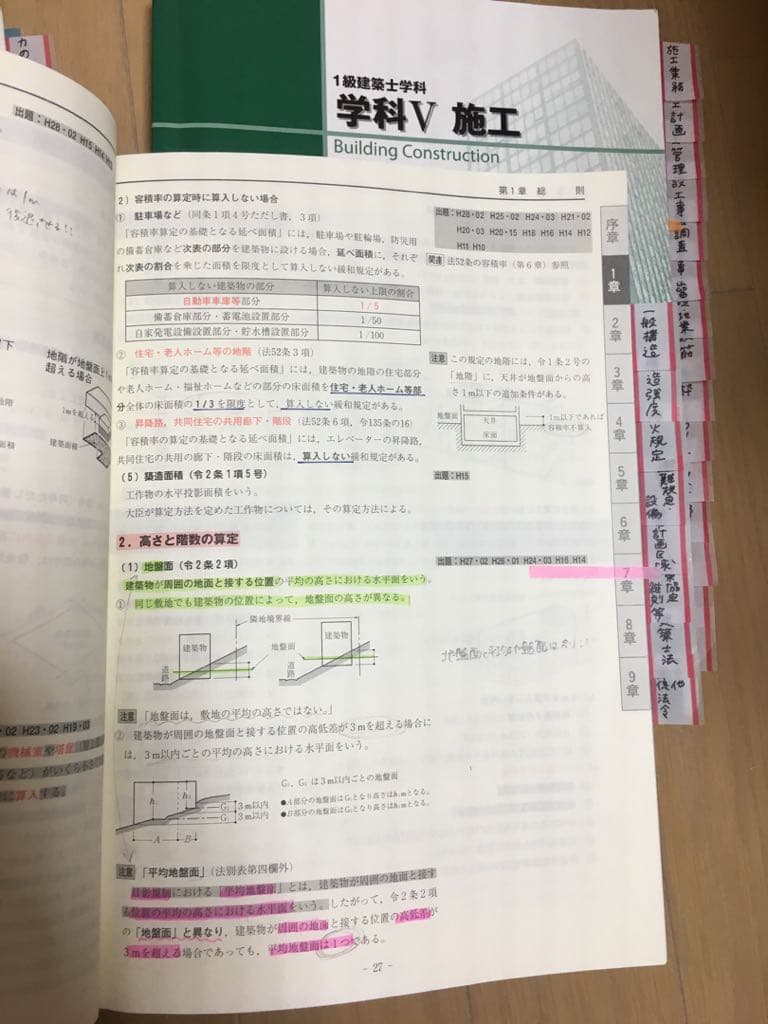 1級建築士学科
学科Ⅴ 施工
Building Construction
施工業務
工計画
管理
改工事
調査
出題：H28・02 H15 H14
は1m
後退させる!!
第1章 総 則
2）容積率の算定時に算入しない場合
① 駐車場など（同条1項4号ただし書，3項）
「容積率算定の基礎となる延べ面積」には，駐車場や駐輪場，防災用
の備蓄倉庫など次表の部分を建築物に設ける場合，延べ面積に，それぞ
れ次表の割合を乗じた面積を限度として算入しない緩和規定がある。
算入しない建築物の部分 算入しない上限の割合
自動車車庫等部分 1/5
備蓄倉庫部分・蓄電池設置部分 1/50
自家発電設備設置部分・貯水槽設置部分 1/100
出題：H28・02 H25・02 H24・03 H21・02
H20・03 H20・15 H18 H16 H14 H12
H11 H10
関連 法52条の容積率（第6章）参照
② 住宅・老人ホーム等の地階（法52条3項）
「容積率算定の基礎となる延べ面積」には，建築物の地階の住宅部分
や老人ホーム・福祉ホームなどの部分の床面積を住宅・老人ホーム等部
分全体の床面積の1/3を限度として，算入しない緩和規定がある。
注意 この規定の地階には，令1条2号の
「地階」に，天井が地盤面からの高
さ1m以下の追加条件がある。
地盤面
天井
床面
1m以下であれば
容積率不算入
③ 昇降路，共同住宅の共用廊下・階段（法52条6項，令135条の16）
「容積率の算定の基礎となる延べ面積」には，エレベーターの昇降路，
共同住宅の共用の廊下・階段の床面積は，算入しない緩和規定がある。
（5）築造面積（令2条1項5号）
出題：H15
工作物の水平投影面積をいう。
大臣が算定方法を定めた工作物については，その算定方法による。
2．高さと階数の算定
（1）地盤面（令2条2項）
出題：H27・02 H26・01 H24・03 H16 H14
建築物が周囲の地面と接する位置の平均の高さにおける水平面をいう。
① 同じ敷地でも建築物の位置によって，地盤面の高さが異なる。
隣地境界線
建築物
建築物
地盤面
道路
道路
注意 「地盤面は，敷地の平均の高さではない。」
② 建築物が周囲の地面と接する位置の高低差が3mを超える場合に
は，3m以内ごとの平均の高さにおける水平面をいう。
G₁，G₂は3m以内ごとの地盤面
●A部分の地盤面はG₁となり高さはh₁mとなる。
●B部分の地盤面はG₂となり高さはh₂mとなる。
h₁
h₂
G₂
G₁
3m以内
3m以内
A
B
注意 「平均地盤面」（法別表第四欄外）
日影規制における「平均地盤面」とは，建築物が周囲の地面と接す
る位置の平均の高さにおける水平面をいう。したがって，令2条2項
の「地盤面」と異なり，建築物が周囲の地面と接する位置の高低差が
3mを超える場合であっても，平均地盤面は1つである。
- 27 -
序章
1章
2章
3章
4章
5章
6章
7章
8章
9章
一般構造
構造強度
火規定
設備
計画区域
築士法
他法令
地階が地盤面上1m
超える場合
1mを超える
建築面積
地階
02 H23・02 H19・03
機械室
塔屋
に算入する。